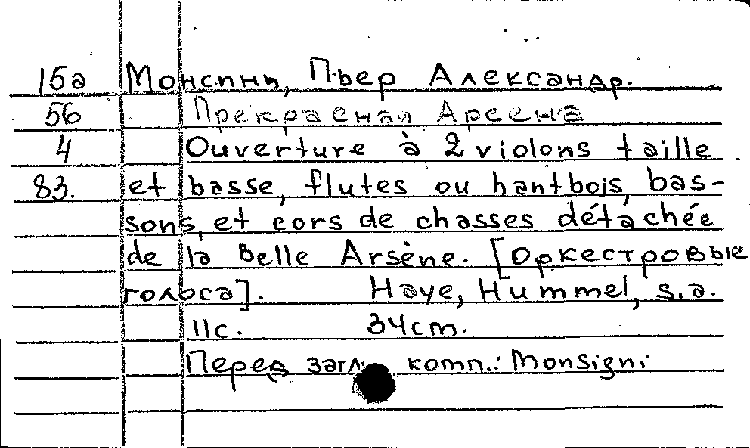 15а Монсиньи, Пьер Александр.
56 Прекрасная Арсена
4 Ouverture à 2 violons taille
83. et basse, flutes ou hantbois, bas-
sons, et cors de chasses détachée
de la Belle Arsène. [Оркестровые
голоса]. Haye, Hummel, s.a.
11с. 34cm.
Перед загл. комп.: Monsigni